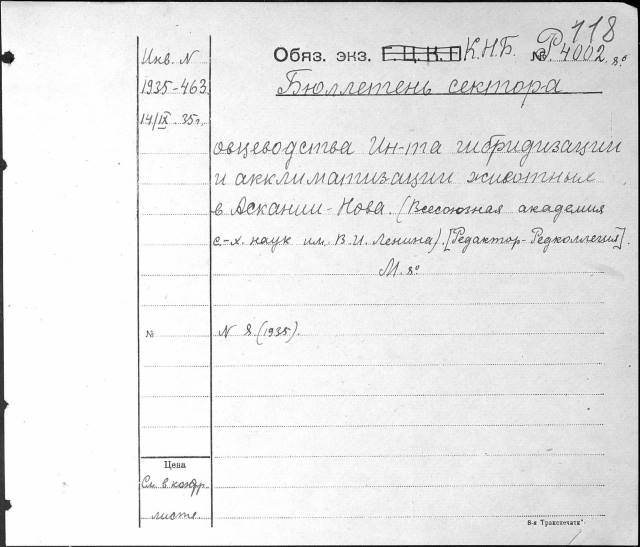 118
Инв. N
1935-463
14/IX 35 г.
Обяз. экз. Г.Ц.К.П К.Н.Б. № Р.4002. 8.º
Бюллетень сектора
овцеводства Ин-та гибридизации
и акклиматизации животных
в Аскании-Нова. (Всесоюзная академия
с.-х. наук им. В. И. Ленина). [Редактор-Редколлегия].
М. 8º
№ N 8 (1935).
Цена
См. в контр.
листе
8-я Транспечати"